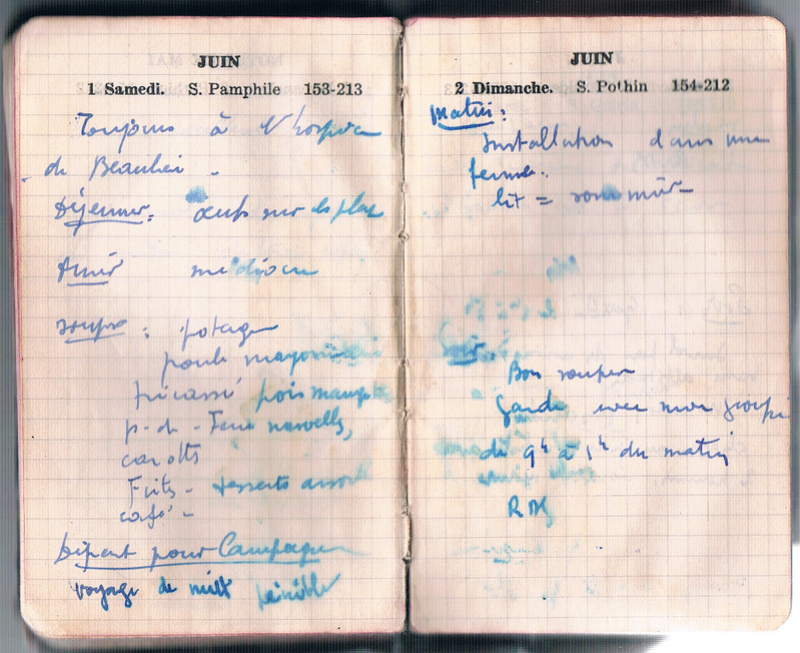 JUIN
1 Samedi. S. Pamphile 153-213
Toujours à l'hospice
de Beaulieu.
Déjeuner: œufs sur le plat
Dîner médiocre
souper: potage
poule mayonnaise
fricassé pois mange
p. de Terre nouvelles,
carotts
Fruits - desserts assortis
café -
Départ pour Campagne
voyage de nuit pénible
JUIN
2 Dimanche. S. Pothin 154-212
Matin:
Installation dans une
ferme.
lit =
Soir
Bon souper
Garde avec mon groupe
de 9h à 1h du matin